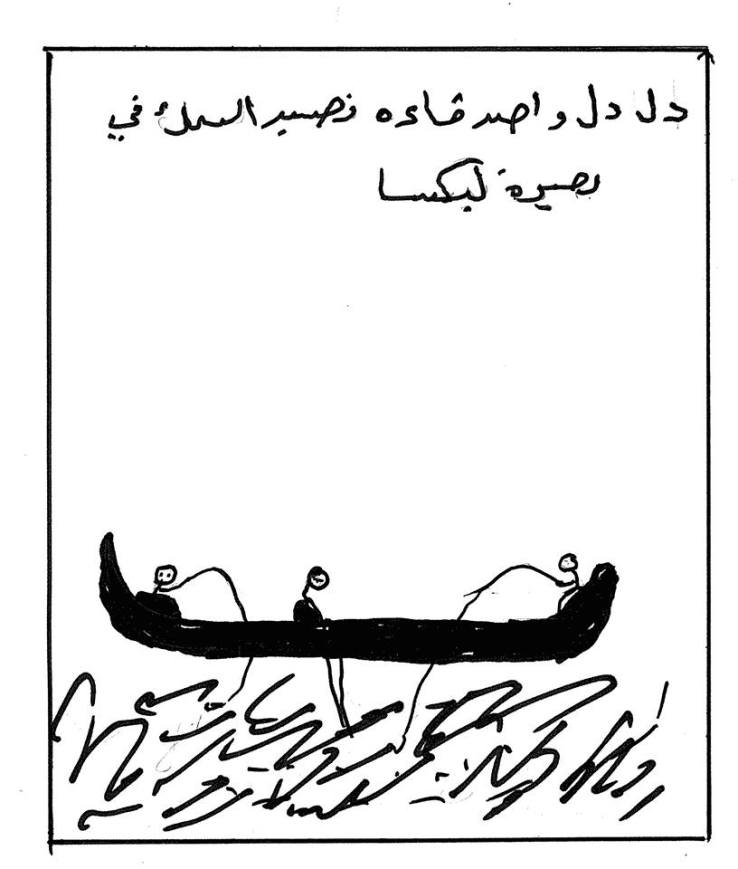 دل دل واصدقاءه نصيد السمك في
بحيرة ليكسا